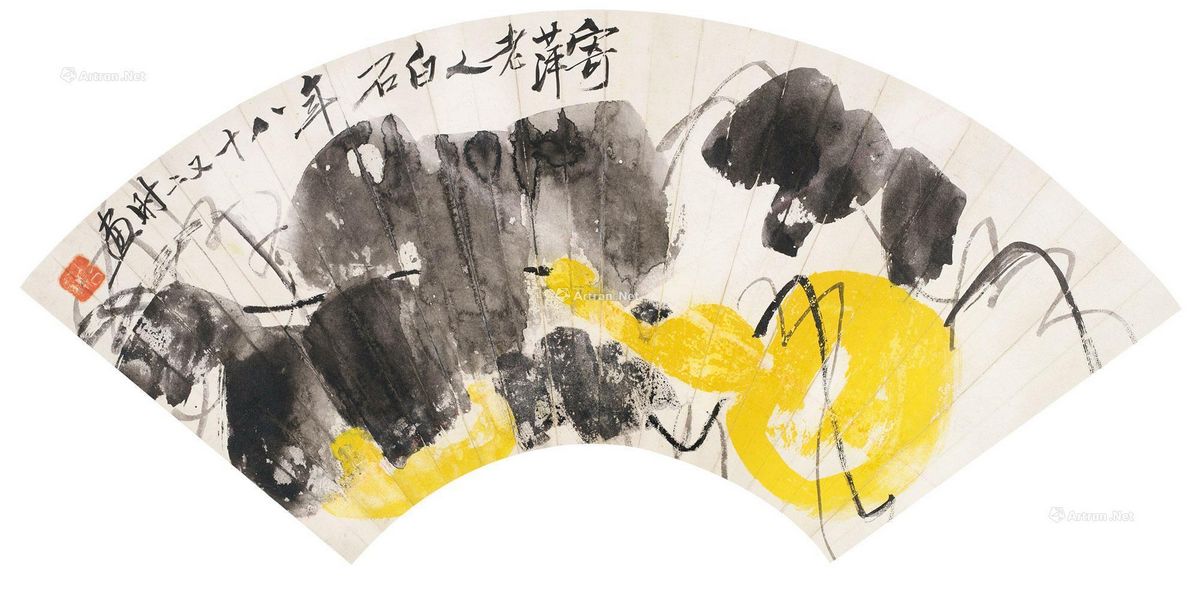 寄萍老人白石年八十又二时畫
Artron.Net
Artron.Net
Artron.Net